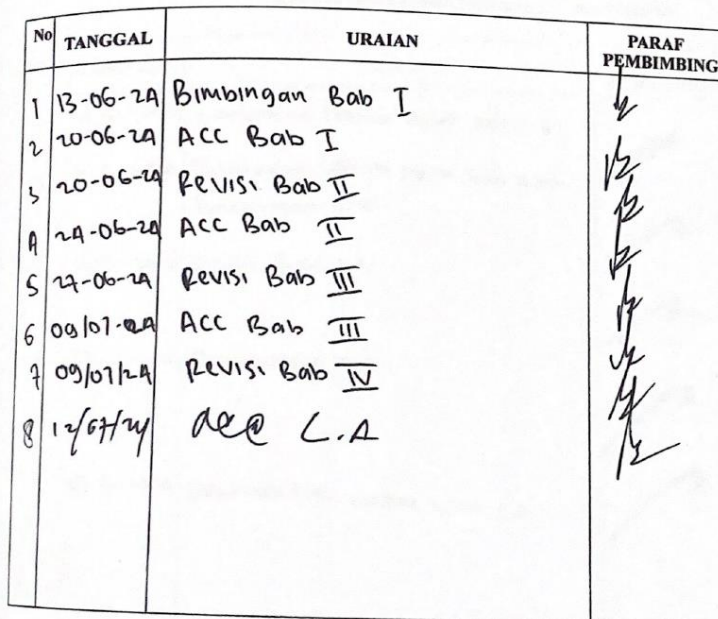 No TANGGAL URAIAN PARAF PEMBIMBING
1 13-06-24 Bimbingan Bab I
2 20-06-24 ACC Bab I
3 20-06-24 Revisi Bab II
4 24-06-24 ACC Bab II
5 27-06-24 Revisi Bab III
6 09/07-24 ACC Bab III
7 09/07/24 Revisi Bab IV
8 12/07/24 acc L.A